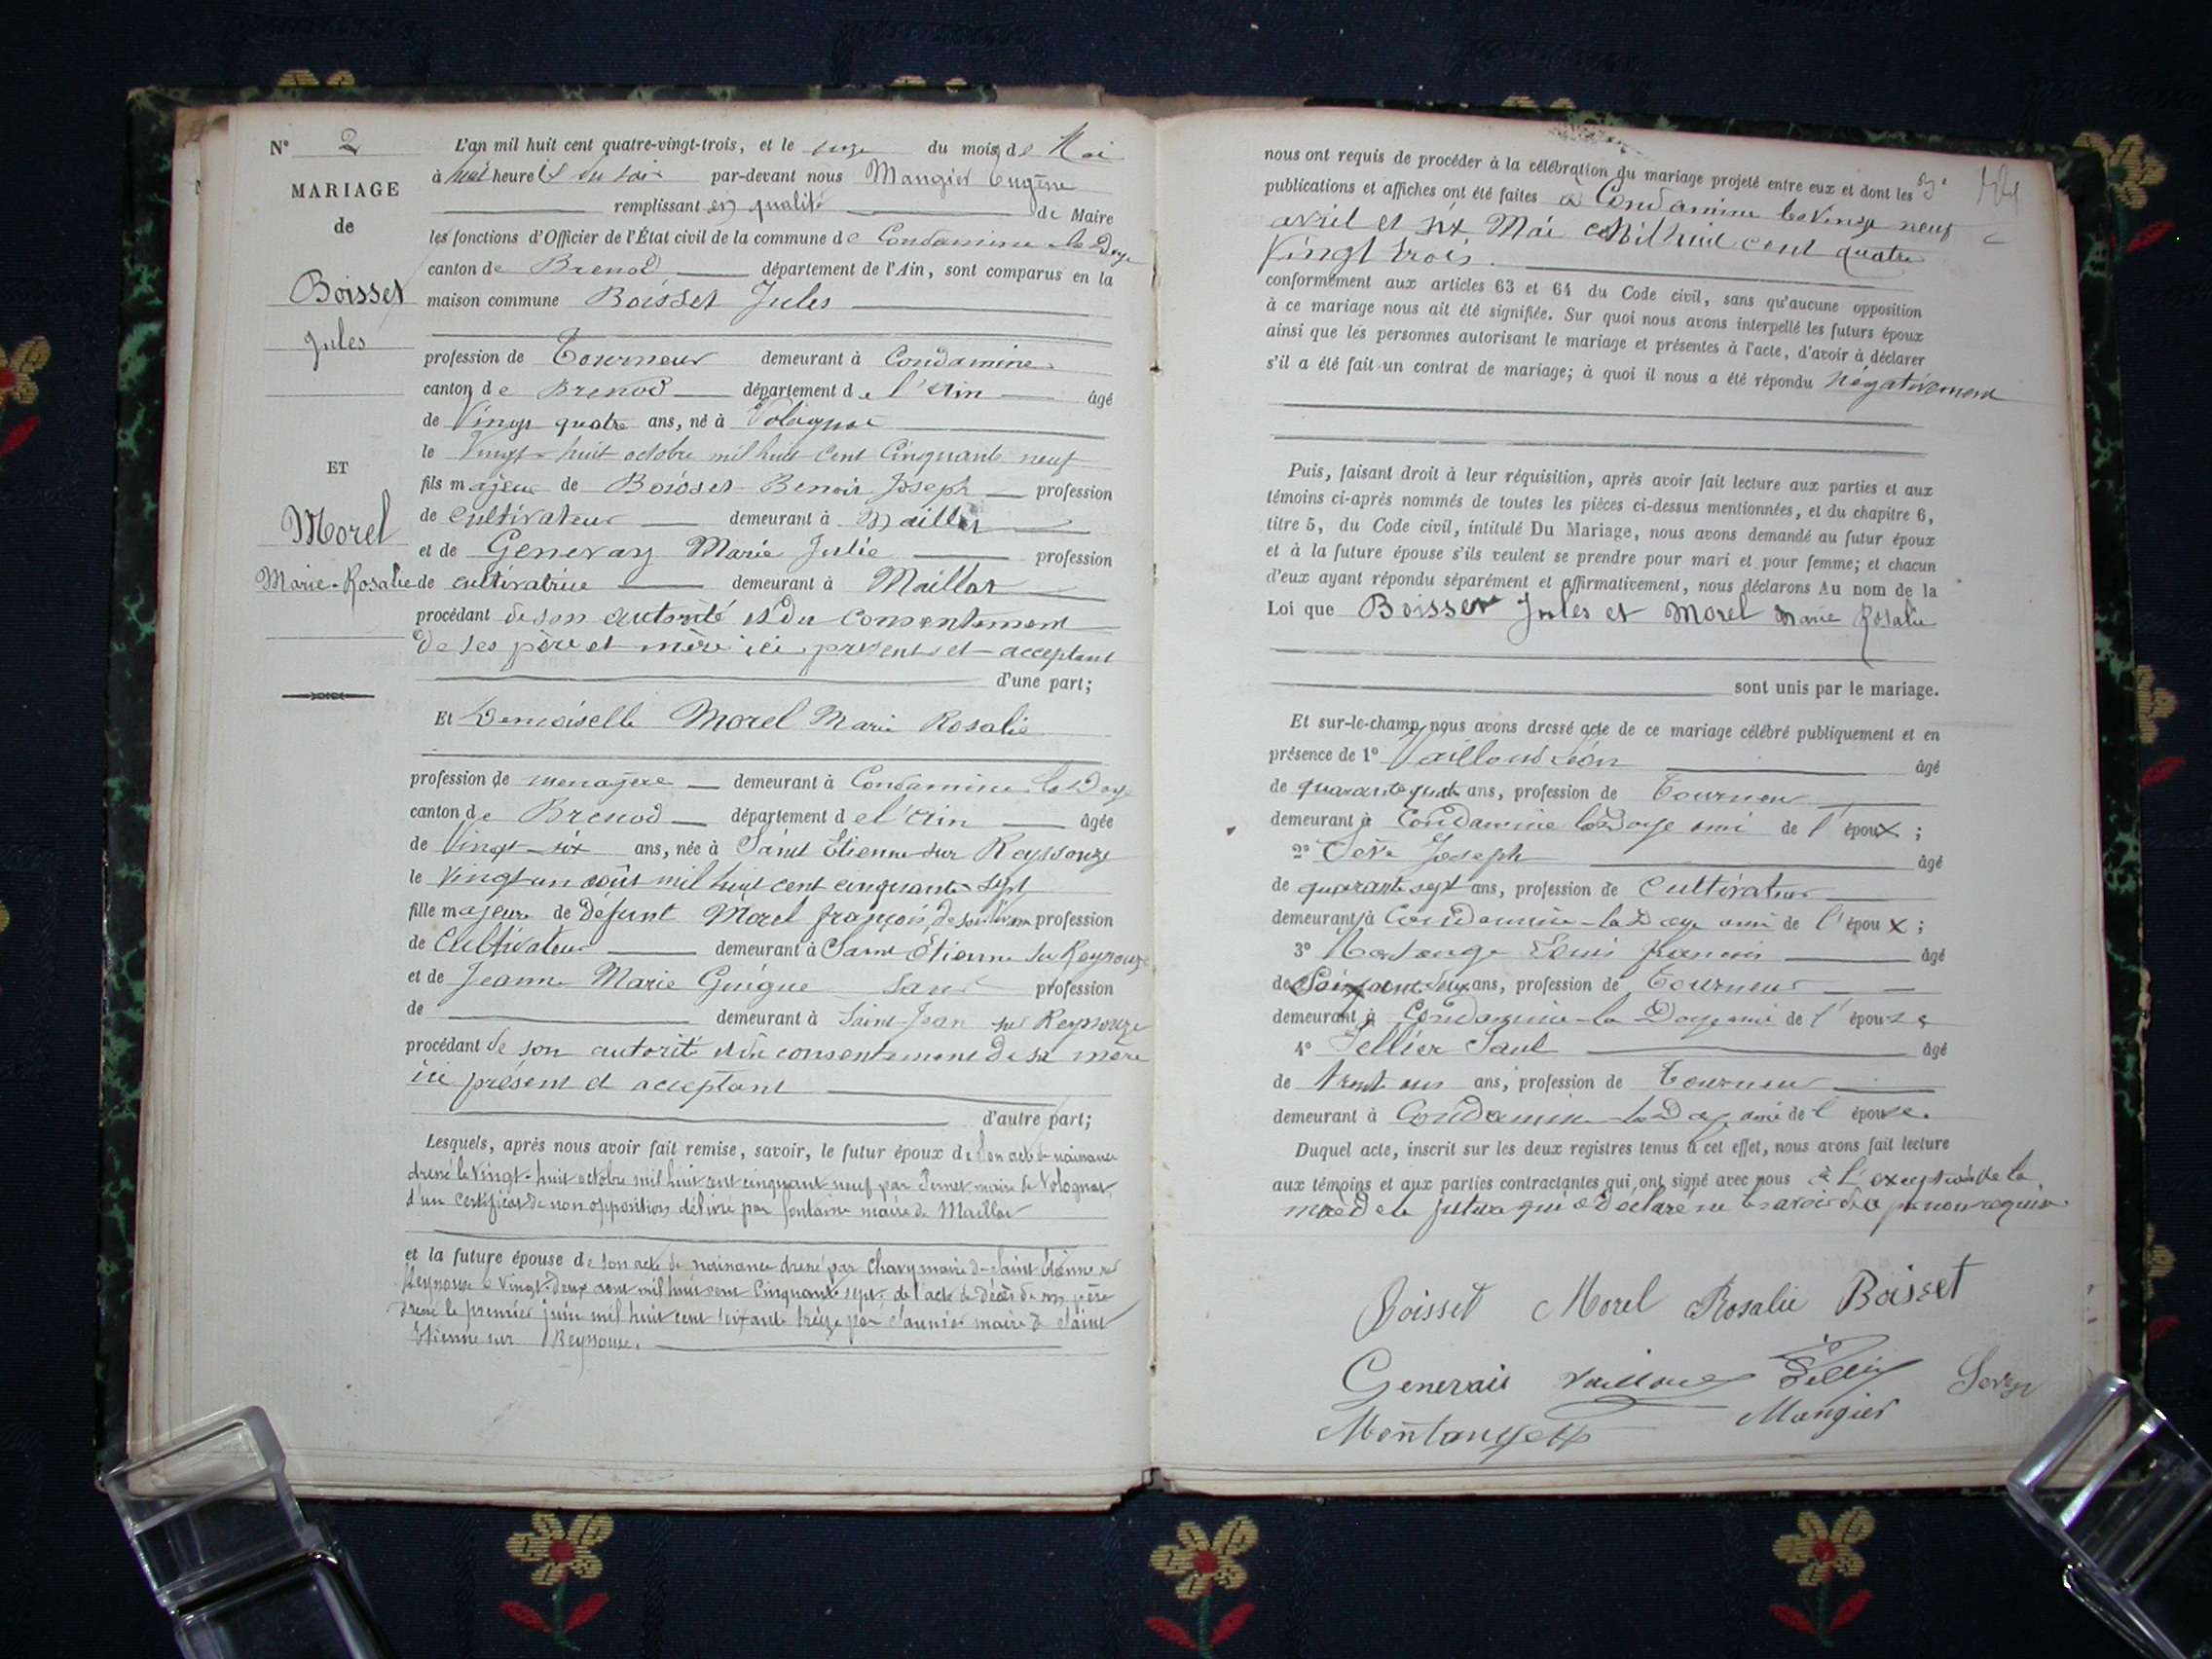 N° 2
MARIAGE
de
Boisset
Jules
ET
Morel
Marie-Rosalie
L'an mil huit cent quatre-vingt-trois, et le du mois de Mai
à huit heures du soir par-devant nous Mangier Eugène
remplissant en qualité de Maire
les fonctions d'Officier de l'État civil de la commune de Condamine la Doye
canton de Brenod département de l'Ain, sont comparus en la
maison commune Boisset Jules
profession de Tourneur demeurant à Condamine
canton de Brenod département de l'Ain âgé
de Vingt quatre ans, né à Volognat
le Vingt-huit octobre mil huit cent Cinquante neuf
fils majeur de Boisset Benoit Joseph profession
de cultivateur demeurant à Maillat
et de Genevay Marie Julie profession
de cultivatrice demeurant à Maillat
procédant de son autorité et du consentement
de ses père et mère ici présents et acceptant
d'une part;
Et Demoiselle Morel Marie Rosalie
profession de menagère demeurant à Condamine la Doye
canton de Brenod département de l'Ain âgée
de Vingt-six ans, née à Saint Etienne sur Reyssouze
le Vingt un août mil huit cent cinquante sept
fille majeure de défunt Morel françois, de son vivant profession
de Cultivateur demeurant à Saint Etienne sur Reyssouze
et de Jeanne Marie Guigue sans profession
de demeurant à Saint-Jean sur Reyssouze
procédant de son autorité et du consentement de sa mère
ici présent et acceptant
d'autre part;
Lesquels, après nous avoir fait remise, savoir, le futur époux de Son acte de naissance
dressé le vingt-huit octobre mil huit cent cinquante neuf par Pernet maire de Volognat,
d'un certificat de non opposition délivré par fontaine maire de Maillat
et la future épouse de son acte de naissance dressé par Chavy maire de Saint Etienne sur
Reyssouze le Vingt-deux aout mil huit cent Cinquante sept, de l'acte de décès de son père
dressé le premier juin mil huit cent soixante treize par Saunier maire de Saint
Etienne sur Reyssouze.
nous ont requis de procéder à la célébration du mariage projeté entre eux et dont les
publications et affiches ont été faites à Condamine le Vingt neuf
avril et six Mai Mil huit cent quatre
Vingt trois.
conformément aux articles 63 et 64 du Code civil, sans qu'aucune opposition
à ce mariage nous ait été signifiée. Sur quoi nous avons interpellé les futurs époux
ainsi que les personnes autorisant le mariage et présentes à l'acte, d'avoir à déclarer
s'il a été fait un contrat de mariage; à quoi il nous a été répondu Négativement
Puis, faisant droit à leur réquisition, après avoir fait lecture aux parties et aux
témoins ci-après nommés de toutes les pièces ci-dessus mentionnées, et du chapitre 6,
titre 5, du Code civil, intitulé Du Mariage, nous avons demandé au futur époux
et à la future épouse s'ils veulent se prendre pour mari et pour femme; et chacun
d'eux ayant répondu séparément et affirmativement, nous déclarons Au nom de la
Loi que Boisset Jules et Morel Marie Rosalie
sont unis par le mariage.
Et sur-le-champ nous avons dressé acte de ce mariage célébré publiquement et en
présence de 1° Vailloud Léon âgé
de quarante quatre ans, profession de Tourneur
demeurant à Condamine la Doye ami de l'époux;
2° Joseph âgé
de quarante sept ans, profession de Cultivateur
demeurant à Condamine-la Doye ami de l'époux;
3° Louis francois âgé
de Soixante deux ans, profession de Tourneur
demeurant à Condamine-la Doye ami de l'épouse
4° Tellier Paul âgé
de trent ans, profession de Tourneur
demeurant à Condamine-la Doye ami de l'épouse.
Duquel acte, inscrit sur les deux registres tenus à cet effet, nous avons fait lecture
aux témoins et aux parties contractantes qui ont signé avec nous à l'exception de la
mère de la future qui a déclaré ne le savoir de ce par nous requise
Boisset Morel Rosalie Boisset
Genevais Vailloud
Mangier